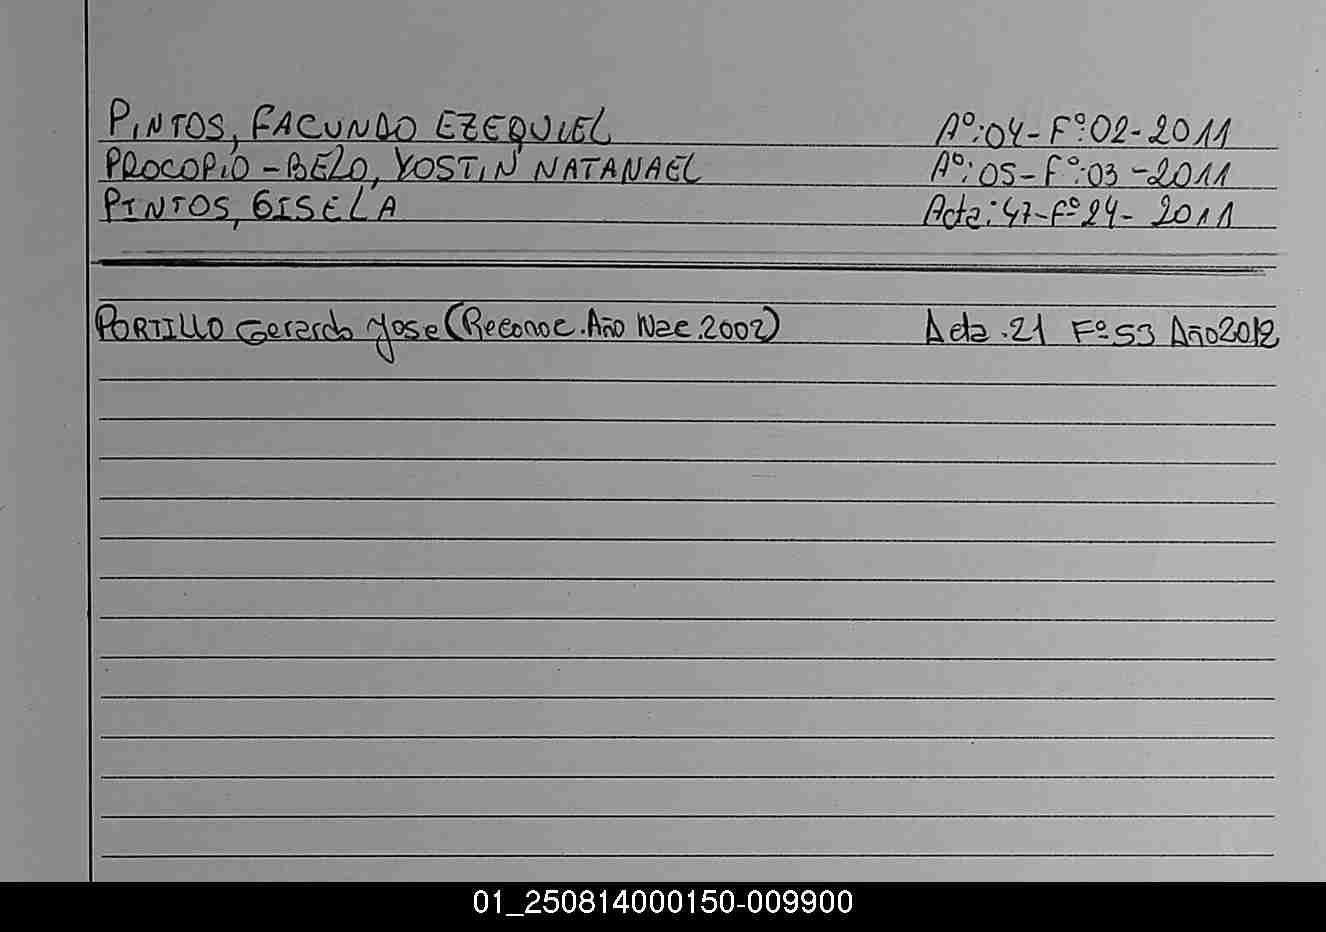 PINTOS, FACUNDO EZEQUIEL Aº:04-Fº:02-2011
PROCOPIO-BELO, YOSTIN NATANAEL Aº:05-Fº:03-2011
PINTOS, GISELA Acta:47-Fº24-2011
PORTILLO Gerardo Jose (Reconoc. Año Nac. 2002) Acta.21 Fº53 Año2012
01_250814000150-009900